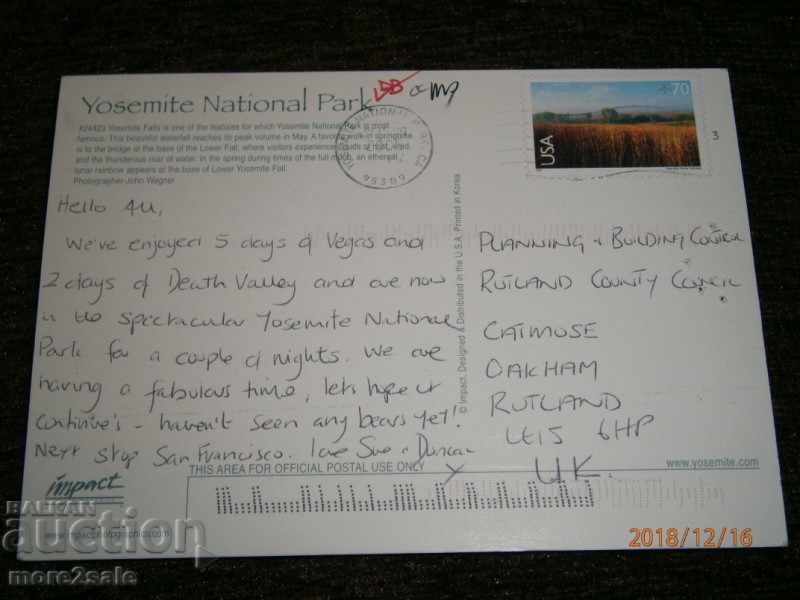 Yosemite National Park
LDB or MP
#24423 Yosemite Falls is one of the features for which Yosemite National Park is most
famous. This beautiful waterfall reaches its peak volume in May. A favorite walk in springtime
is to the bridge at the base of the Lower Fall, where visitors experience clouds of mist, wind,
and the thunderous roar of water. In the spring during times of the full moon, an ethereal
lunar rainbow appears at the base of Lower Yosemite Fall.
Photographer John Wagner
95389
70
USA
3
Hello 4U,
We've enjoyed 5 days of Vegas and
2 days of Death Valley and are now
in the spectacular Yosemite National
Park for a couple of nights. We are
having a fabulous time, lets hope it
continue's - haven't seen any bears yet!
Next stop San Francisco. Love Sue + Duncan
x
© Impact, Designed & Distributed in the U.S.A. Printed in Korea
PLANNING + BUILDING CONTROL
RUTLAND COUNTY COUNCIL
CATMOSE
OAKHAM
RUTLAND
LE15 6HP
U.K.
THIS AREA FOR OFFICIAL POSTAL USE ONLY
www.yosemite.com
impact
www.impactphotographics.com
БАЛКАН
auction
more2sale
2018/12/16